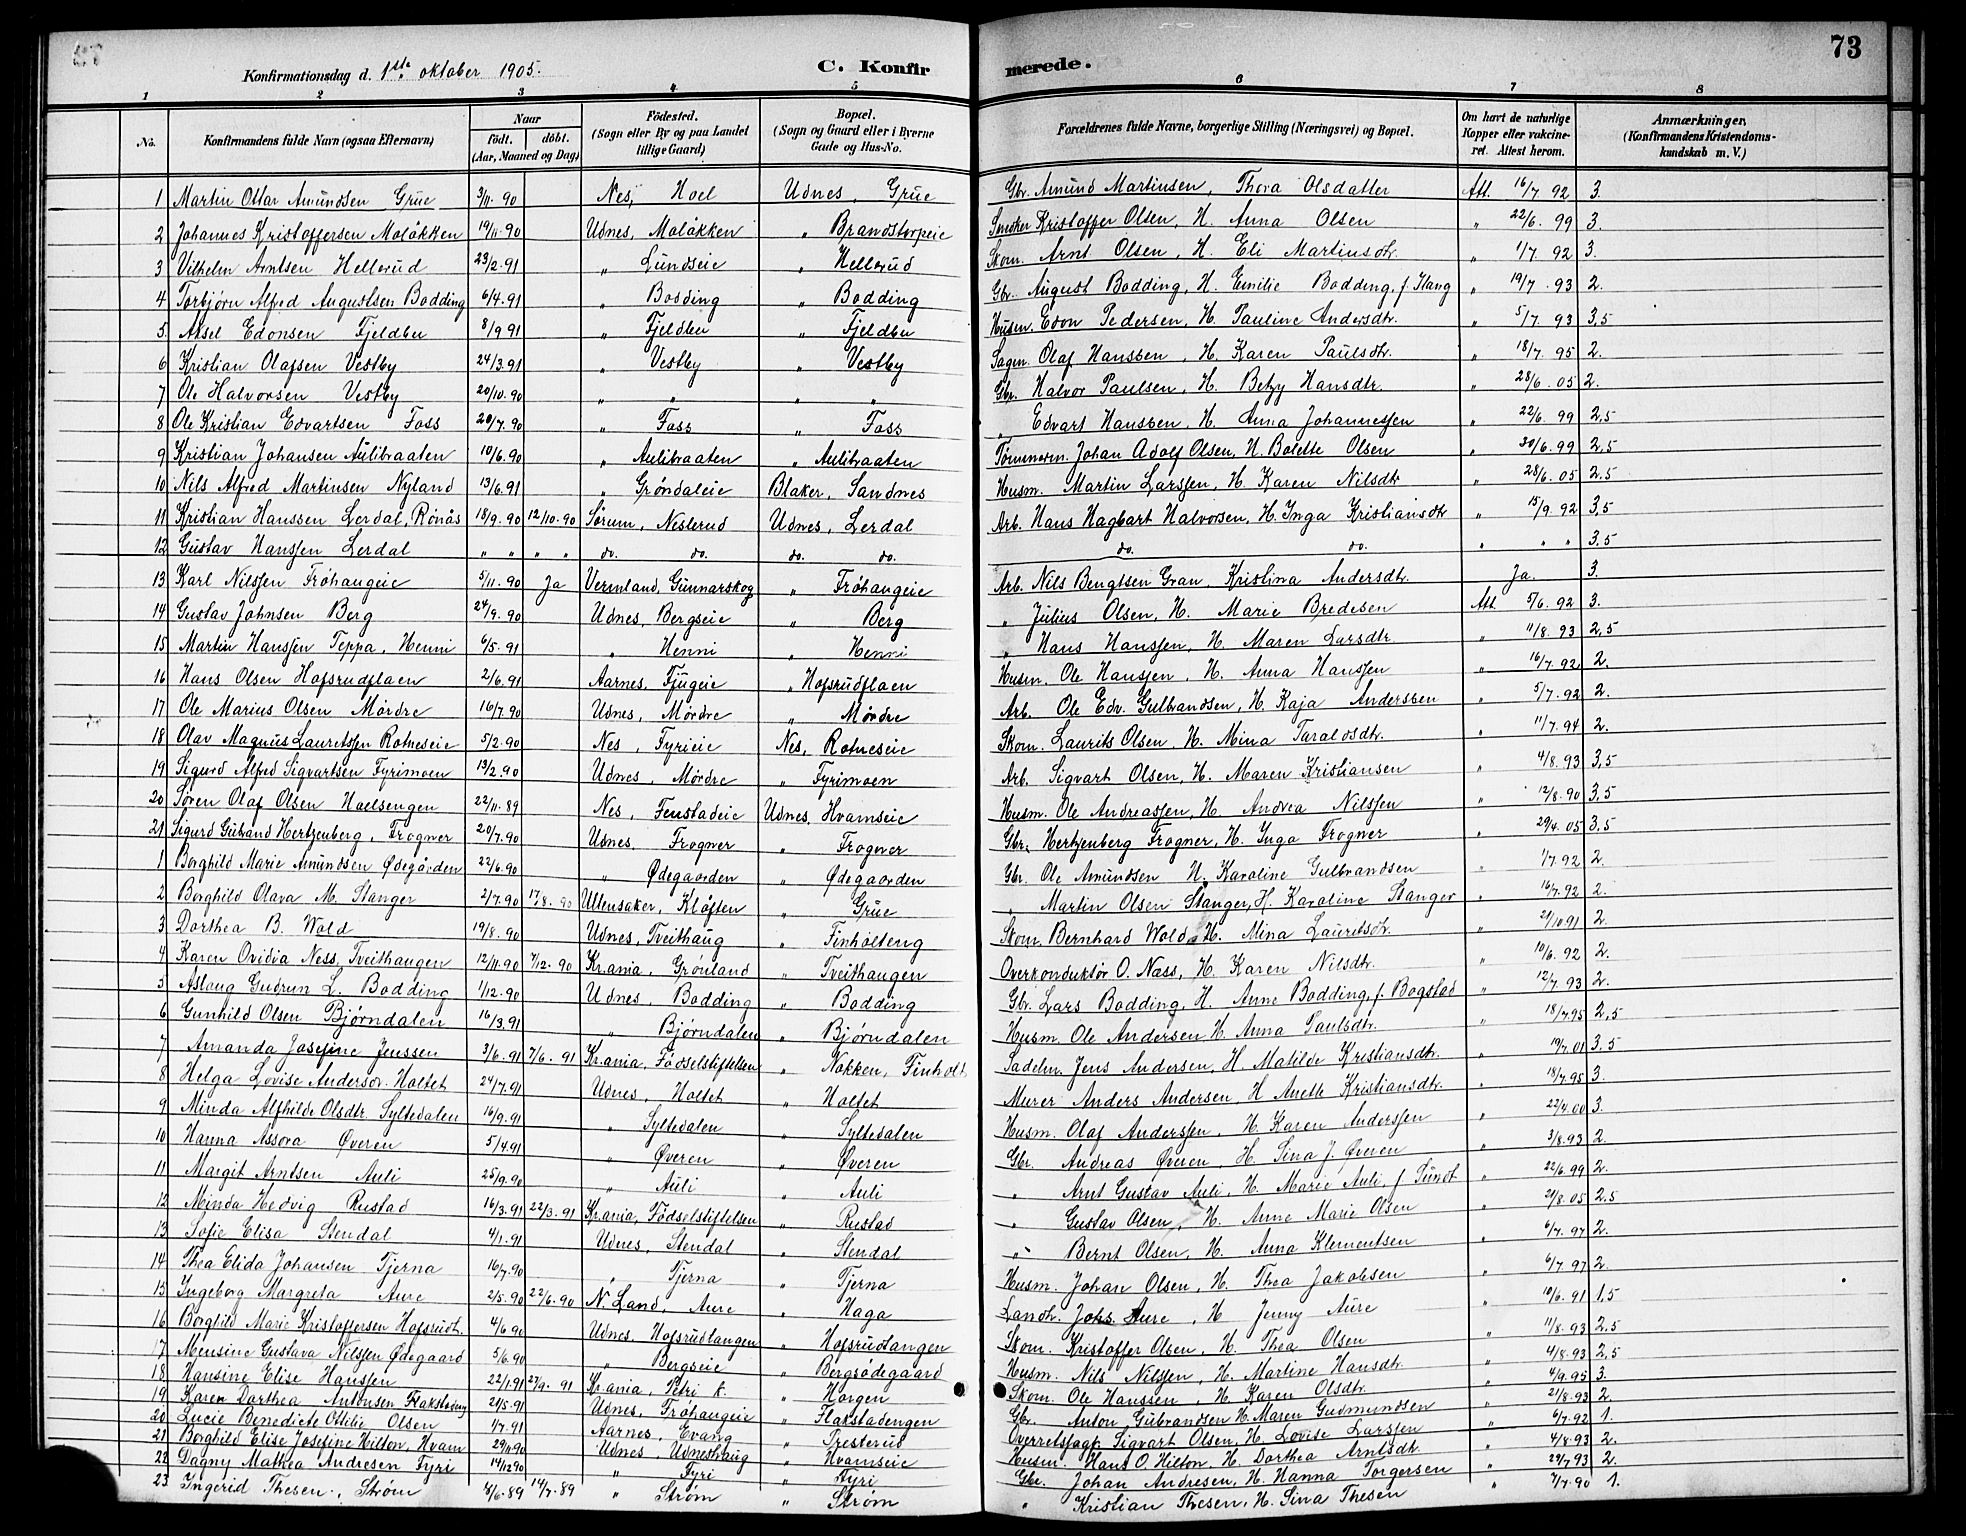 73
Konfirmationsdag d. 1ste oktober 1905. C. Konfirmerede.
1 2 3 4 5 6 7 8
No. Konfirmandens fulde Navn (ogsaa Efternavn) Naar födt. döbt. (Aar, Maaned og Dag) Födested. (Sogn eller By og paa Landet tillige Gaard) Bopæl. (Sogn og Gaard eller i Byerne Gade og Hus-No. Forældrenes fulde Navne, borgerlige Stilling (Næringsvei) og Bopæl. Om havt de naturlige Kopper eller vakcineret. Attest herom. Anmærkninger, (Konfirmandens Kristendomskundskab m. V.)
1 Martin Ottar Amundsen Grue 3/11.90 Nes, Hoel Udnes, Grue Gbr. Amund Martinsen, Thora Olsdatter Att. 16/7 92 3.
2 Johannes Kristoffersen Moløkken 19/11.90 Udnes, Moløkken " Brandstorpeie Snedker Kristoffer Olsen, H. Anna Olsen " 22/6. 99 3.
3 Vilhelm Arntsen Hellerud 23/2.91 " Lundseie " Hellerud Skom. Arnt Olsen, H. Eli Martinsdtr. " 1/7. 92 3.
4 Torbjørn Alfred Augustsen Bodding 6/4.91 " Bodding " Bodding Gbr. August Bodding, H. Emilie Bodding, f. Stang " 19/7.93 2.
5. Aksel Edonsen Fjeldbu 8/9 91 " Fjeldbu " Fjeldbu Husm. Edon Pedersen, H. Pauline Andersdtr. " 5/7. 93 3,5
6 Kristian Olafsen Vestby 24/3.91 " Vestby " Vestby Sagm. Olaf Hanssen, H. Karen Paulsdtr. " 18/7. 95 2.
7 Ole Halvorsen Vestby 20/10.90 " " " " Gbr. Halvor Paulsen, H. Betzy Hansdtr. " 28/6.05 2.
8 Ole Kristian Edvartsen Foss 20/7.90 " Foss " Foss " Edvart Hanssen, H. Anna Johannessen " 22/6. 99 2,5
9 Kristian Johansen Aulibraaten 10/6.90 " Aulibraaten " Aulibraaten Tømmerm. Johan Adolf Olsen, H. Bolette Olsen " 30/6.99 2,5
10 Nils Alfred Martinsen Nyland 13/6.91 " Grøndaleie Blaker, Sandnes Husm. Martin Larssen, H. Karen Nilsdtr " 28/6.05 2.5
11 Kristian Hanssen Lerdal, Rønås 18/9.90 12/10.90 Sørum, Nesterud Udnes, Lerdal Arb. Hans Hagbart Halvorsen, H. Inga Kristiansdtr " 15/9 92 3,5
12 Gustav Hanssen Lerdal " " " " do. do. do. do. do. do. " " " 3.5
13 Karl Nilssen Frøhaugeie 5/11.90 Ja Vermland, Gunnarskog " Frøhaugeie Arb. Nils Bengtsen Gran, Kristina Andersdtr. Ja. 3.
14 Gustav Johnsen Berg 24/9.90 Udnes, Bergseie " Berg " Julius Olsen, H. Marie Bredesen Att. 5/6. 92 3.
15 Martin Hanssen Teppa, Henni 6/5.91 " Henni " Henni " Hans Hanssen, H. Maren Larsdtr " 11/8. 93 2,5
16 Hans Olsen Hofsrudflaen 2/6.91 Aarnes, Fjugeie " Hofsrudflaen Husm. Ole Hanssen, H. Anna Hanssen " 16/7.92 2.
17 Ole Marius Olsen Mørdre 16/7.90 Udnes, Mørdre " Mørdre Arb. Ole Edv. Gulbrandsen, H. Kaja Anderssen " 5/7.92 2.
18 Olav Magnus Lauritssen Rotneseie 5/2.90 Nes, Fyrieie Nes, Rotneseie Skom. Laurits Olsen, H. Mina Taraldsdtr. " 11/7.94 2.
19 Sigurd Alfred Sigvartsen Fyrimoen 13/2.90 Udnes, Mørdre " Fyrimoen Arb. Sigvart Olsen, H. Maren Kristiansen " 4/8.93 3,5
20 Søren Olaf Olsen Haelsengen 22/11.89 Nes, Fenstadeie Udnes, Hvamseie Husm. Ole Andreassen, H. Andrea Nilssen " 12/8.90 3,5
21 Sigurd Gulbrand Hertzenberg, Frogner 20/7.90 Udnes, Frogner " Frogner Gbr. Hertzenberg Frogner, H. Inga Frogner " 29/4.05 3,5
1 Borghild Marie Amundsen Ødegården 22/6.90 " Ødegaarden " Ødegaarden Gbr. Ole Amundsen H. Karoline Gulbrandsen " 1/7.92 2.
2 Borghild Olava M. Stanger 2/7.90 17/8.90 Ullensaker, Kløften " Grue " Martin Olsen Stanger, H. Karoline Stanger " 16/7.92 2.
3 Dorthea B. Wold 19/8.90 Udnes, Tveithaug " Finholteng Skom. Bernhard Wold, H. Mina Lauritsdtr. " 21/10.91 2.
4 Karen Ovidia Ness, Tveithaugen 12/11.90 7/12.90 Krania, Grønland " Tveithaugen Overkonduktør O. Næss, H. Karen Nilsdtr. " 10/6.92 2.
5 Aslaug Gudrun L. Bodding 1/12.90 Udnes, Bodding " Bodding Gbr. Lars Bodding, H. Anne Bodding, f. Bogstad " 12/7.93 2.
6 Gunhild Olsen Bjørndalen 16/3.91 " Bjørndalen " Bjørndalen Husm. Ole Andersen H. Anna Paulsdtr. " 18/7.95 2,5
7 Amanda Josefine Jenssen 3/6.91 7/6.91 Krania, Fødselstiftelsen " Nokken, Finholt Sadelm. Jens Andersen, H. Matilde Kristiansdtr. " 19/7.01 3.5
8 Helga Lovise Andersdr. Holtet 24/7.91 Udnes, Holtet " Holtet Murer Anders Andersen, H Anette Kristiansdtr. " 18/7.95 3.
9 Minda Alfhilde Olsdtr. Syltedalen 16/9.91 " Syltedalen " Syltedalen Husm. Olaf Anderssen, H. Karen Anderssen " 22/4.00 3.
10 Hanna Assora Øveren 5/4.91 " Øveren " Øveren Gbr. Andreas Øveren, H. Sina J. Øveren " 3/8.93 2.
11 Margit Arntsen Auli 25/9.90 " Auli " Auli " Arnt Gustav Auli, H. Marie Auli, f. Sundt " 22/6.99 2.
12 Minda Hedvig Rustad 16/3.91 22/3.91 Krania, Fødselstiftelsen " Rustad " Gustav Olsen, H. Anne Marie Olsen " 21/8.05 2,5
13 Sofie Elisa Stendal 4/1.91 Udnes, Stendal " Stendal " Bernt Olsen, H. Anna Klementsen " 6/7.97 2.
14 Thea Elida Johansen Tjerna 16/7.90 " Tjerna " Tjerna Husm. Johan Olsen, H. Thea Jakobsen " 6/7.97 2.
15 Ingeborg Margreta Aure 2/5.90 22/6.90 N. Land, Aure " Haga Landh. Johs. Aure, H Jenny Aure " 10/6.91 1,5
16 Borghild Marie Kristoffersen Hofsrudt. 4/6 90 Udnes, Hofsrudtangen " Hofsrudtangen Skom. Kristoffer Olsen, H. Thea Olsen " 11/8.93 2,5
17 Mensine Gustava Nilssen Ødegaard 5/6.90 " Bergseie " Bergsødegaard Husm. Nils Nilssen, H. Martine Hansdtr. " 4/8.93 2,5
18 Hansine Elise Hanssen 22/1.91 27/9.91 Krania, Petri k. " Horgen Skom. Ole Hanssen, H. Karen Olsdtr. " 4/9.95 3.
19 Karen Dorthea Antonsen Flakstadeng 21/5.91 Udnes, Frøhaugeie " Flakstadengen Gbr. Anton Gulbrandsen H. Maren Gudmundsen " 21/8.93 2.
20 Lucie Benedicte Ottilie Olsen 1/7.91 Aarnes, Evang " Presterud Overretssagf. Sigvart Olsen, H. Lovise Larssen " 6/7.92 1.
21 Borghild Elise Josefine Hilton, Hvam 29/11.90 Udnes, Udneshaug " Hvamseie Husm. Hans O. Hilton, H. Dorthea Arntsdt. " 4/8.93 2.
22 Dagny Mathea Andresen Fyri 14/12.90 " Fyri " Fyri Gbr. Johan Andresen, H. Hanna Torgersen " 29/7 93 2.
23 Ingerid Thesen, Strøm 18/6.89 14/7.89 " Strøm " Strøm " Kristian Thesen, H. Sina Thesen " 7/7.90 1.